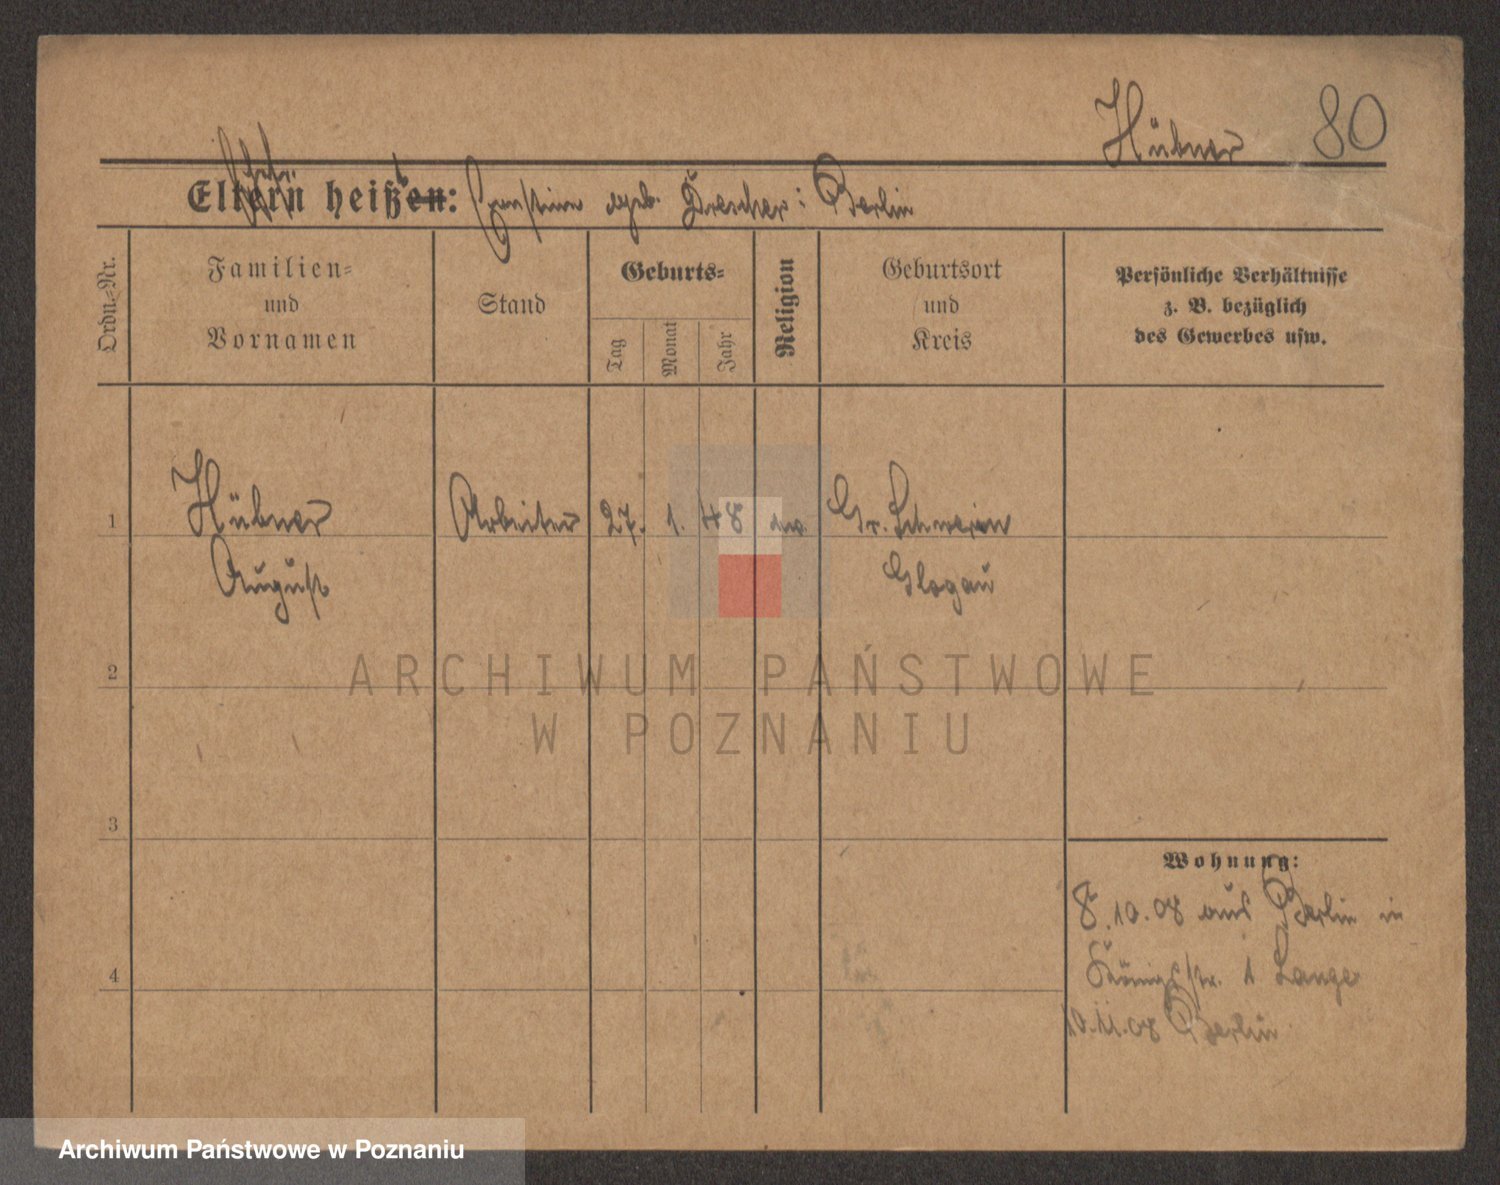 Hübner 80
Eltern heißen: Ernstine geb. Drescher: Berlin
Ordn.-Nr.
Familien-
und
Vornamen
Stand
Geburts-
Tag
Monat
Jahr
Religion
Geburtsort
und
Kreis
Persönliche Verhältnisse
z. B. bezüglich
des Gewerbes usw.
1 Hübner Arbeiter 27. 1. 48 ev. Gr. Schwein
August Glogau
2
ARCHIWUM PAŃSTWOWE
W POZNANIU
3
Wohnung:
8.10.08 aus Berlin in
Königstr. 1 Lange
4
10.11.08 Berlin
Archiwum Państwowe w Poznaniu